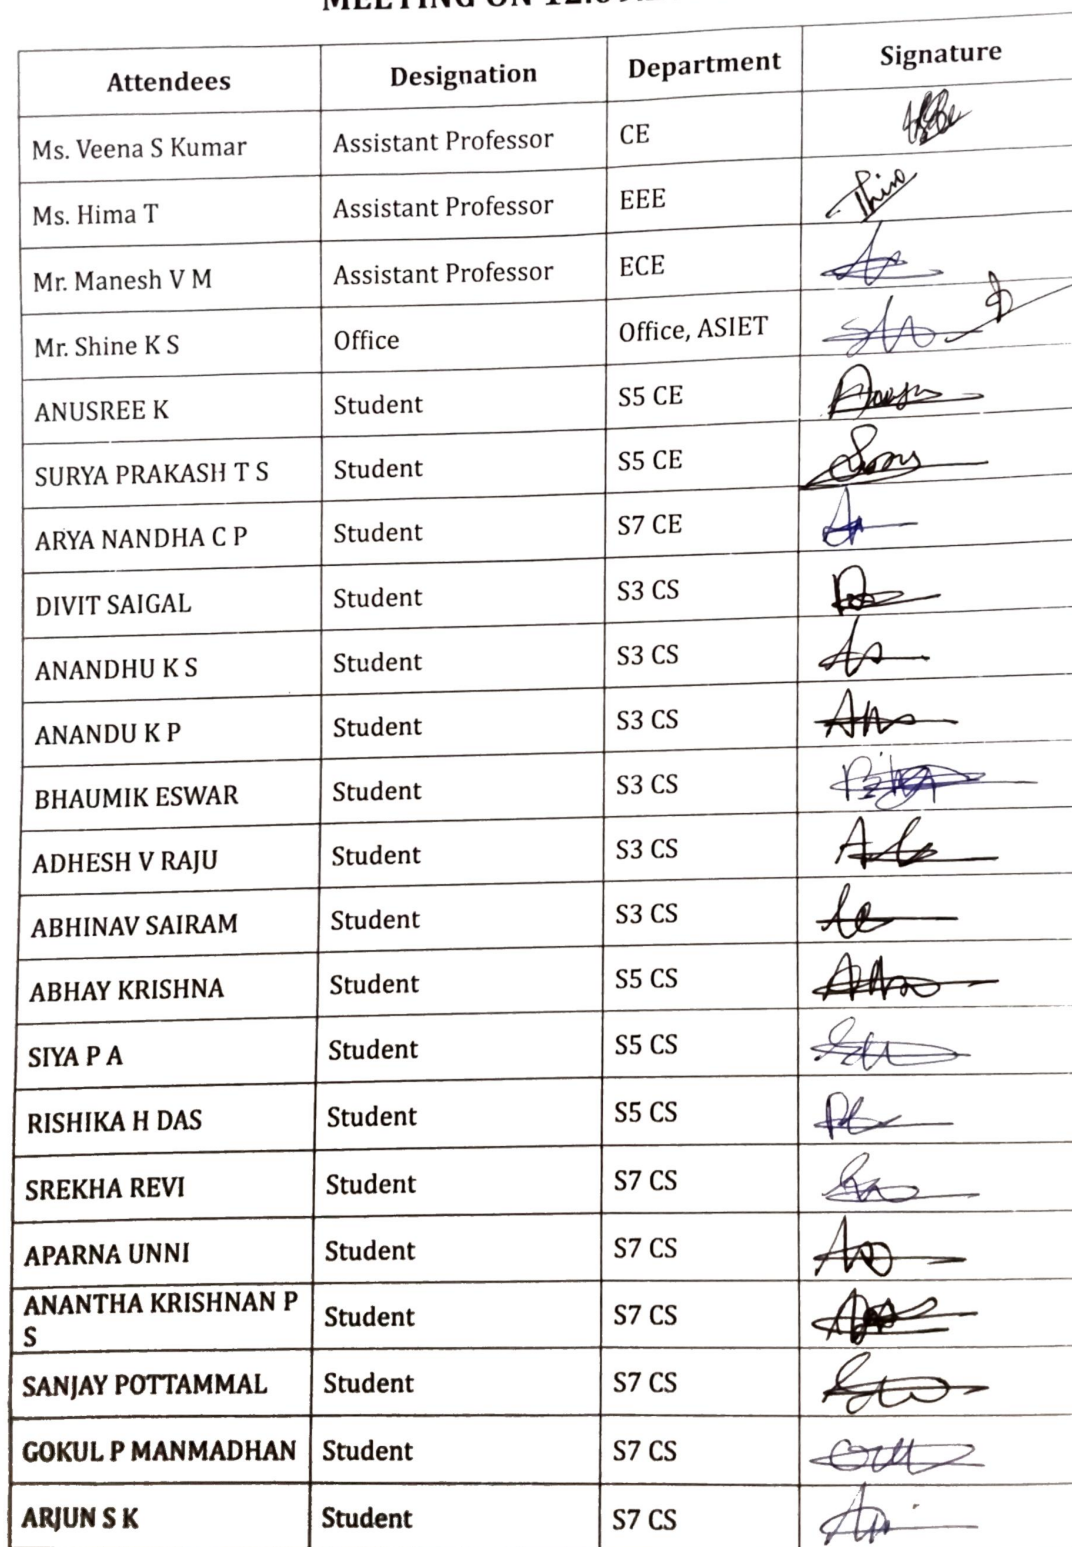 MEETING ON 12.
Attendees Designation Department Signature
Ms. Veena S Kumar Assistant Professor CE
Ms. Hima T Assistant Professor EEE
Mr. Manesh V M Assistant Professor ECE
Mr. Shine K S Office Office, ASIET
ANUSREE K Student S5 CE
SURYA PRAKASH T S Student S5 CE
ARYA NANDHA C P Student S7 CE
DIVIT SAIGAL Student S3 CS
ANANDHU K S Student S3 CS
ANANDU K P Student S3 CS
BHAUMIK ESWAR Student S3 CS
ADHESH V RAJU Student S3 CS
ABHINAV SAIRAM Student S3 CS
ABHAY KRISHNA Student S5 CS
SIYA P A Student S5 CS
RISHIKA H DAS Student S5 CS
SREKHA REVI Student S7 CS
APARNA UNNI Student S7 CS
ANANTHA KRISHNAN P
S Student S7 CS
SANJAY POTTAMMAL Student S7 CS
GOKUL P MANMADHAN Student S7 CS
ARJUN S K Student S7 CS